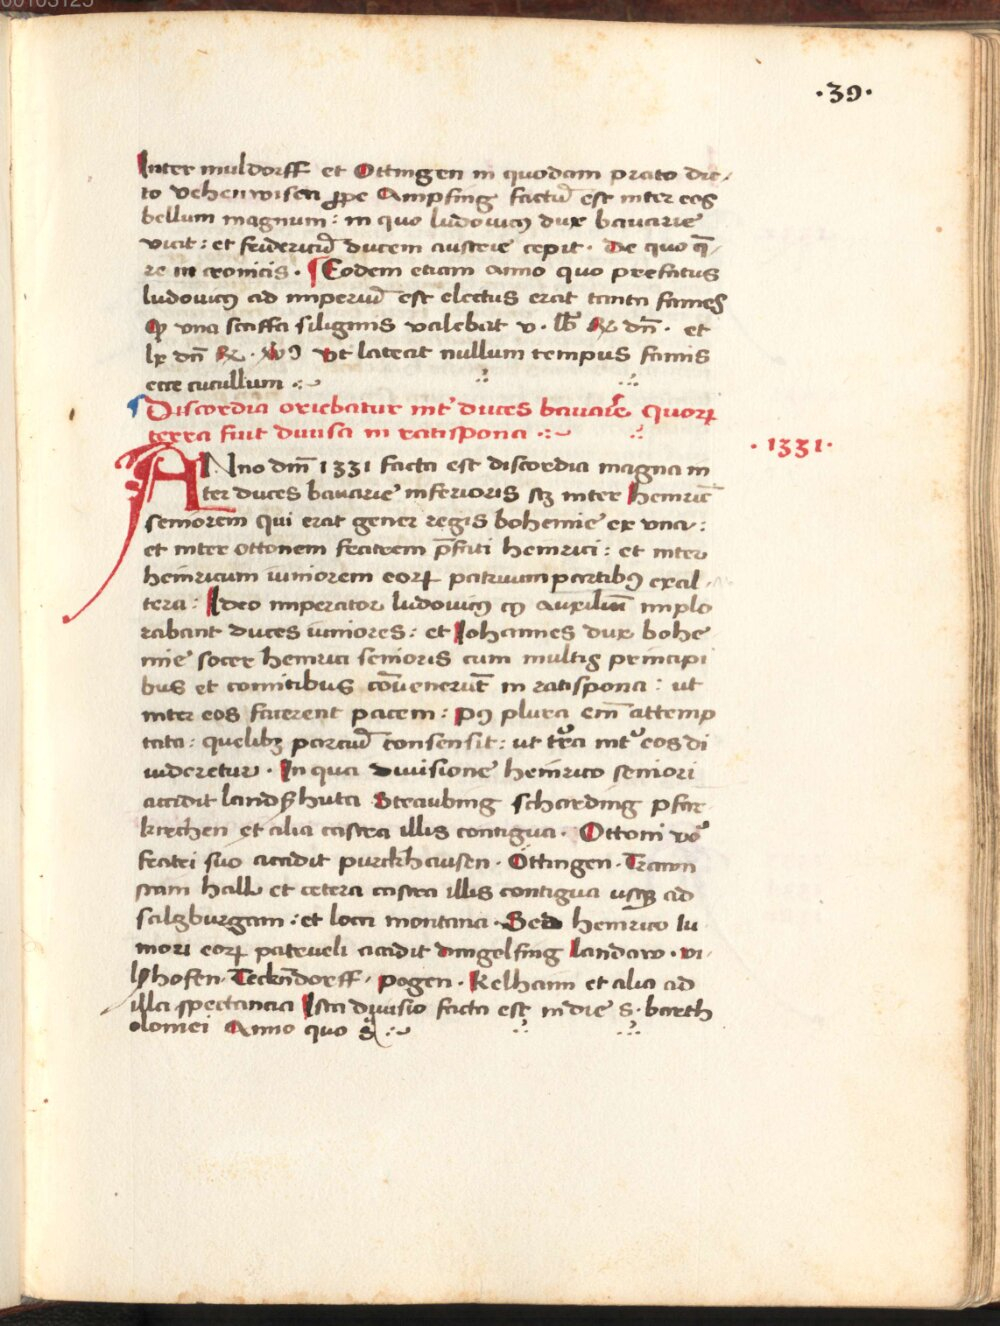 ·39·
Inter muldorff et Ottingen in quodam prato dic-
to vehenwisen ꝓpe Ampfing factū est inter eos
bellum magnum : in quo ludouicꝰ dux bauarie
vicit : et fridericū ducem austrie cepit · De quo q̄-
re in cronicis · ¶ Eodem etiam anno quo prefatus
ludouicꝰ ad imperiū est electus erat tanta fames
ꝙ vna scaffa siliginis valebat v · lb̄ dn̄ · et
lx dn̄ Vt lateat nullum tempus famis
ecce cucullum
¶ Discordia oriebatur int̄ duces bauarie quorꝝ
terra fuit diuisa in ratispona
· 1331 ·
ANno dm̄ 1331 facta est discordia magna in
ter duces bauarie inferioris scꝫ inter heinric̄
seniorem qui erat gener regis bohemie ex vna :
et inter ottonem fratrem p̄fati heinrici : et inter
heinricum iuniorem eorꝝ patruum partibꝰ ex al-
tera : Ideo imperator ludouicꝰ cuius auxiliū implo
rabant duces iuniores : et Iohannes dux bohe
mie socer heinrici senioris cum multis principi
bus et comitibus cōuenerūt in ratispona : ut
inter eos facerent pacem : pꝰ plura em̄ attemp
tata : quelibꝫ parciū consensit : ut tr̄ra int̄ eos di
uideretur · In qua diuisione heinrico seniori
accidit landshuta Straubing scharding pfar
kirchen et alia castra illis contigua · Ottoni vo
fratri suo accidit purckhausen · Ottingen · Trawn
stain hall et cetera castra illis contigua usqꝫ ad
salzburgam : et loca montana · Sed heinrico iu
niori eorꝝ patrueli accidit dingelfing landaw · vi-
lshofen · Teckn̄dorff · pogen · kelhaim et alia ad
illa spectancia Ista diuisio facta est in die S · barth
olomei Anno quo s̄